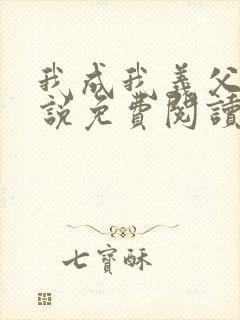 我成我義父
說免費閱讀
七寶酥